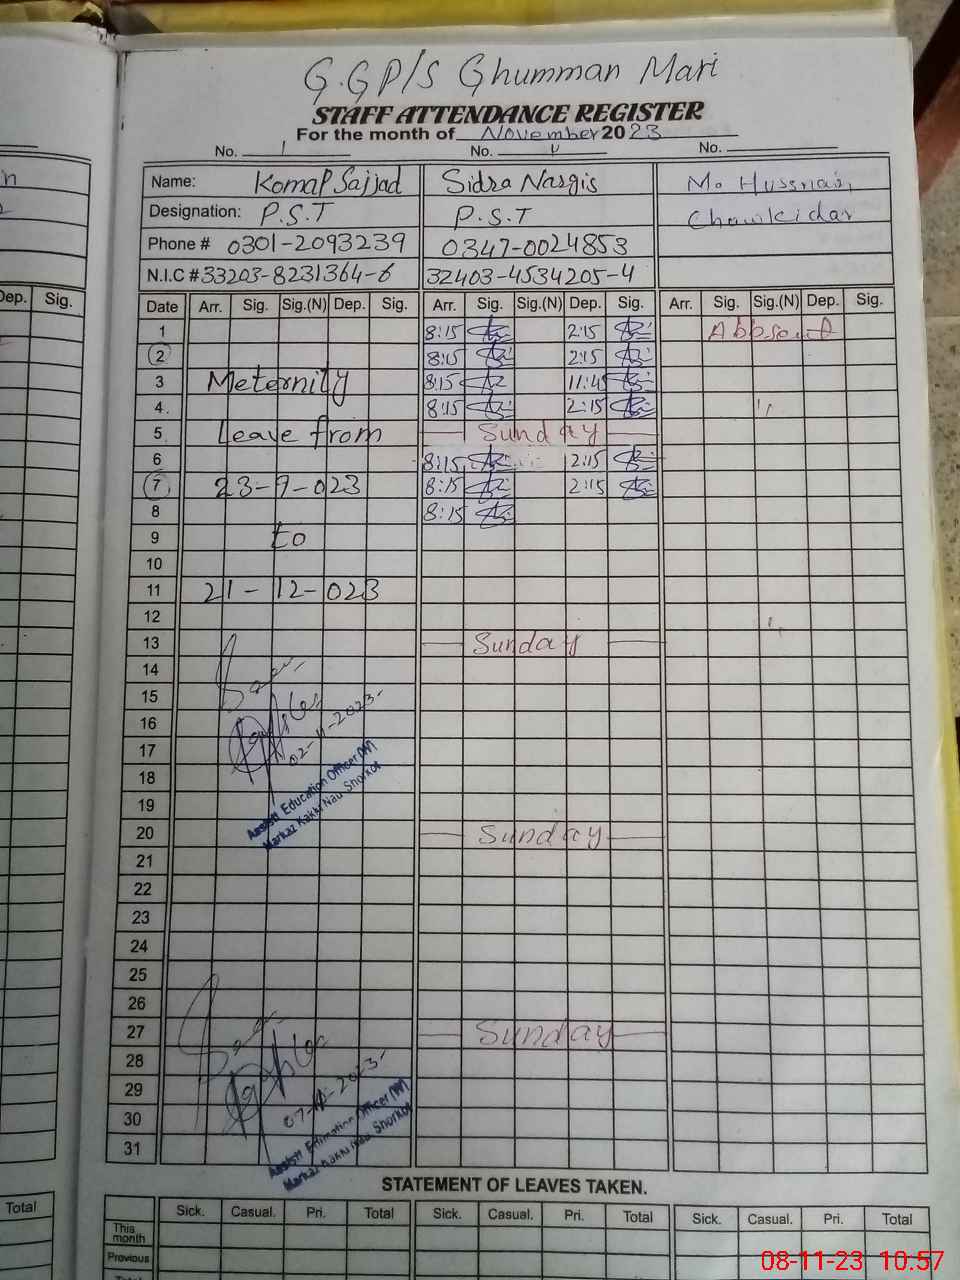 G.GP/S Ghumman Mari
STAFF ATTENDANCE REGISTER
For the month of November 2023
No. 1 No. No.
Name: Komal Sajjad Sidra Nargis M. Hussnain
Designation: P.S.T P.S.T Chowkidar
Phone # 0301-2093239 0347-0024853
N.I.C # 33203-8231364-6 32403-4534205-4
Dep. Sig. Date Arr. Sig. Sig.(N) Dep. Sig. Arr. Sig. Sig.(N) Dep. Sig. Arr. Sig. Sig.(N) Dep. Sig.
1 8:15 2:15 Abbsent
2 8:15 2:15
3 Meternity 8:15 11:45
4. 8:15 2:15 ''
5 Leave from Sunday
6 8:15 12:15
7 23-9-023 8:15 2:15
8 8:15
9 to
10
11 21-12-023
12 ''
13 Sunday
14
15
16
02-11-2023-
17
18
Assistt Education Officer (W)
Markaz Kakki Nau Shorkot
19
20 Sunday
21
22
23
24
25
26
27 Sunday
28
29
07-11-2023-
30
31
Assistt Education Officer (W)
Markaz Kakki Nau Shorkot
STATEMENT OF LEAVES TAKEN.
Total Sick. Casual. Pri. Total Sick. Casual. Pri. Total Sick. Casual. Pri. Total
This month
Previous
Total
08-11-23 10:57